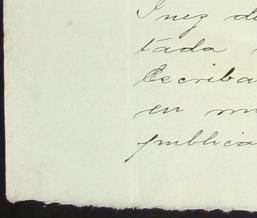 Inez de
tada
Escriba
en
publica